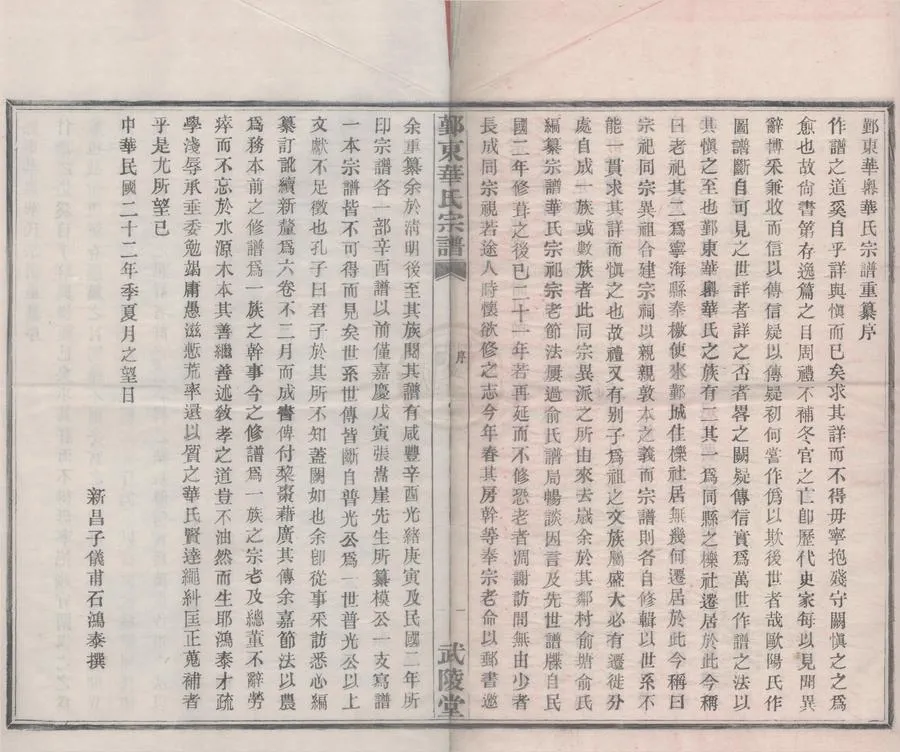 鄞東華嶴華氏宗譜重纂序
作譜之道奚自乎詳與愼而已矣求其詳而不得毋寧抱殘守闕愼之之爲
愈也故尙書第存逸篇之目周禮不補冬官之亡卽歷代史家每以見聞異
辭博采兼收而信以傳信疑以傳疑初何嘗作僞以欺後世者哉歐陽氏作
圖譜斷自可見之世詳者詳之否者畧之闕疑傳信實爲萬世作譜之法以
其愼之至也鄞東華嶴華氏之族有二其一爲同縣之櫟社遷居於此今稱
曰老祀其二爲寧海縣奉檄使來鄞城住櫟社居無幾何遷居於此今稱曰
宗祀同宗異祖合建宗祠以親親敦本之義而宗譜則各自修輯以世系不
能一貫求其詳而愼之也故禮又有別子爲祖之文族屬盛大必有遷徙分
處自成一族或數族者此同宗異派之所由來去歲余於其鄰村俞塘俞氏
編纂宗譜華氏宗祀宗老節法屢過俞氏譜局暢談因言及先世譜牒自民
國二年修葺之後已二十一年若再延而不修恐老者凋謝訪問無由少者
長成同宗視若途人時懷欲修之志今年春其房幹等奉宗老命以鄞書邀
鄞東華氏宗譜
序
一
武陵堂
余重纂余於清明後至其族閱其譜有咸豐辛酉光緖庚寅及民國二年所
印宗譜各一部辛酉譜以前僅嘉慶戊寅張嵩崖先生所纂模公一支寫譜
一本宗譜皆不可得而見矣世系世傳皆斷自普光公爲一世普光公以上
文獻不足徵也孔子曰君子於其所不知蓋闕如也余卽從事采訪悉心編
纂訂訛續新釐爲六卷不二月而成書俾付棃棗藉廣其傳余嘉節法以農
爲務本前之修譜爲一族之幹事今之修譜爲一族之宗老及總董不辭勞
瘁而不忘於水源木本其善繼善述敎孝之道豈不油然而生耶鴻泰才疏
學淺辱承垂委勉竭庸愚滋慙荒率還以質之華氏賢達繩糾匡正蒐補者
乎是尤所望已
中華民國二十二年季夏月之望日
新昌子儀甫石鴻泰撰